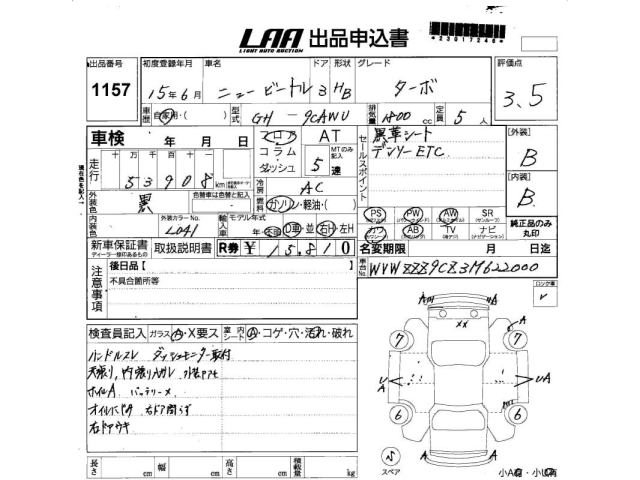 LAA 出品申込書
LIGHT AUTO AUCTION
*23017246*
出品番号 初度登録年月 車名 ドア 形状 グレード 評価点
1157 15年6月 ニュービートル 3 HB ターボ 3.5
車歴 自家用・( ) 型式 GH-9CAWU 排気量 1800 cc 定員 5 人
車検 年 月 日 フロア AT 黒革シート [外装]
現在色を記入。 走行 十 万 千 百 十 一 コラム MTのみ記入 セールスポイント デンソーETC B
53908 km ダッシュ 5 速 [内装]
外装色 黒 色替車は色替と記入 冷房 AC B
内装色 燃料 ガソリン・軽油・( ) PS PW AW SR 純正品のみ丸印
外装カラーNo. L041 輸入車 モデル年式 年 D車・並 右H・左H カワ AB TV ナビ
新車保証書 取扱説明書 R券 ¥15,810 名変期限 月 日迄
ディーラー様印あるもの
注意事項 後日品[ ] 車台No. WVWZZZ9CZ3M622000
不具合箇所等 ロック車
検査員記入 ガラス A・X要ス 室内シート A・コゲ・穴・汚れ・破れ
ハンドルスレ ダッシュモニター取付
ホイルA バッテリー×
右ドアウキ
長さ cm 幅 cm 高さ cm 積載量 kg
A A
XX
7 7 A
UA UA
6 6
A A
スペア 小A有・小U有